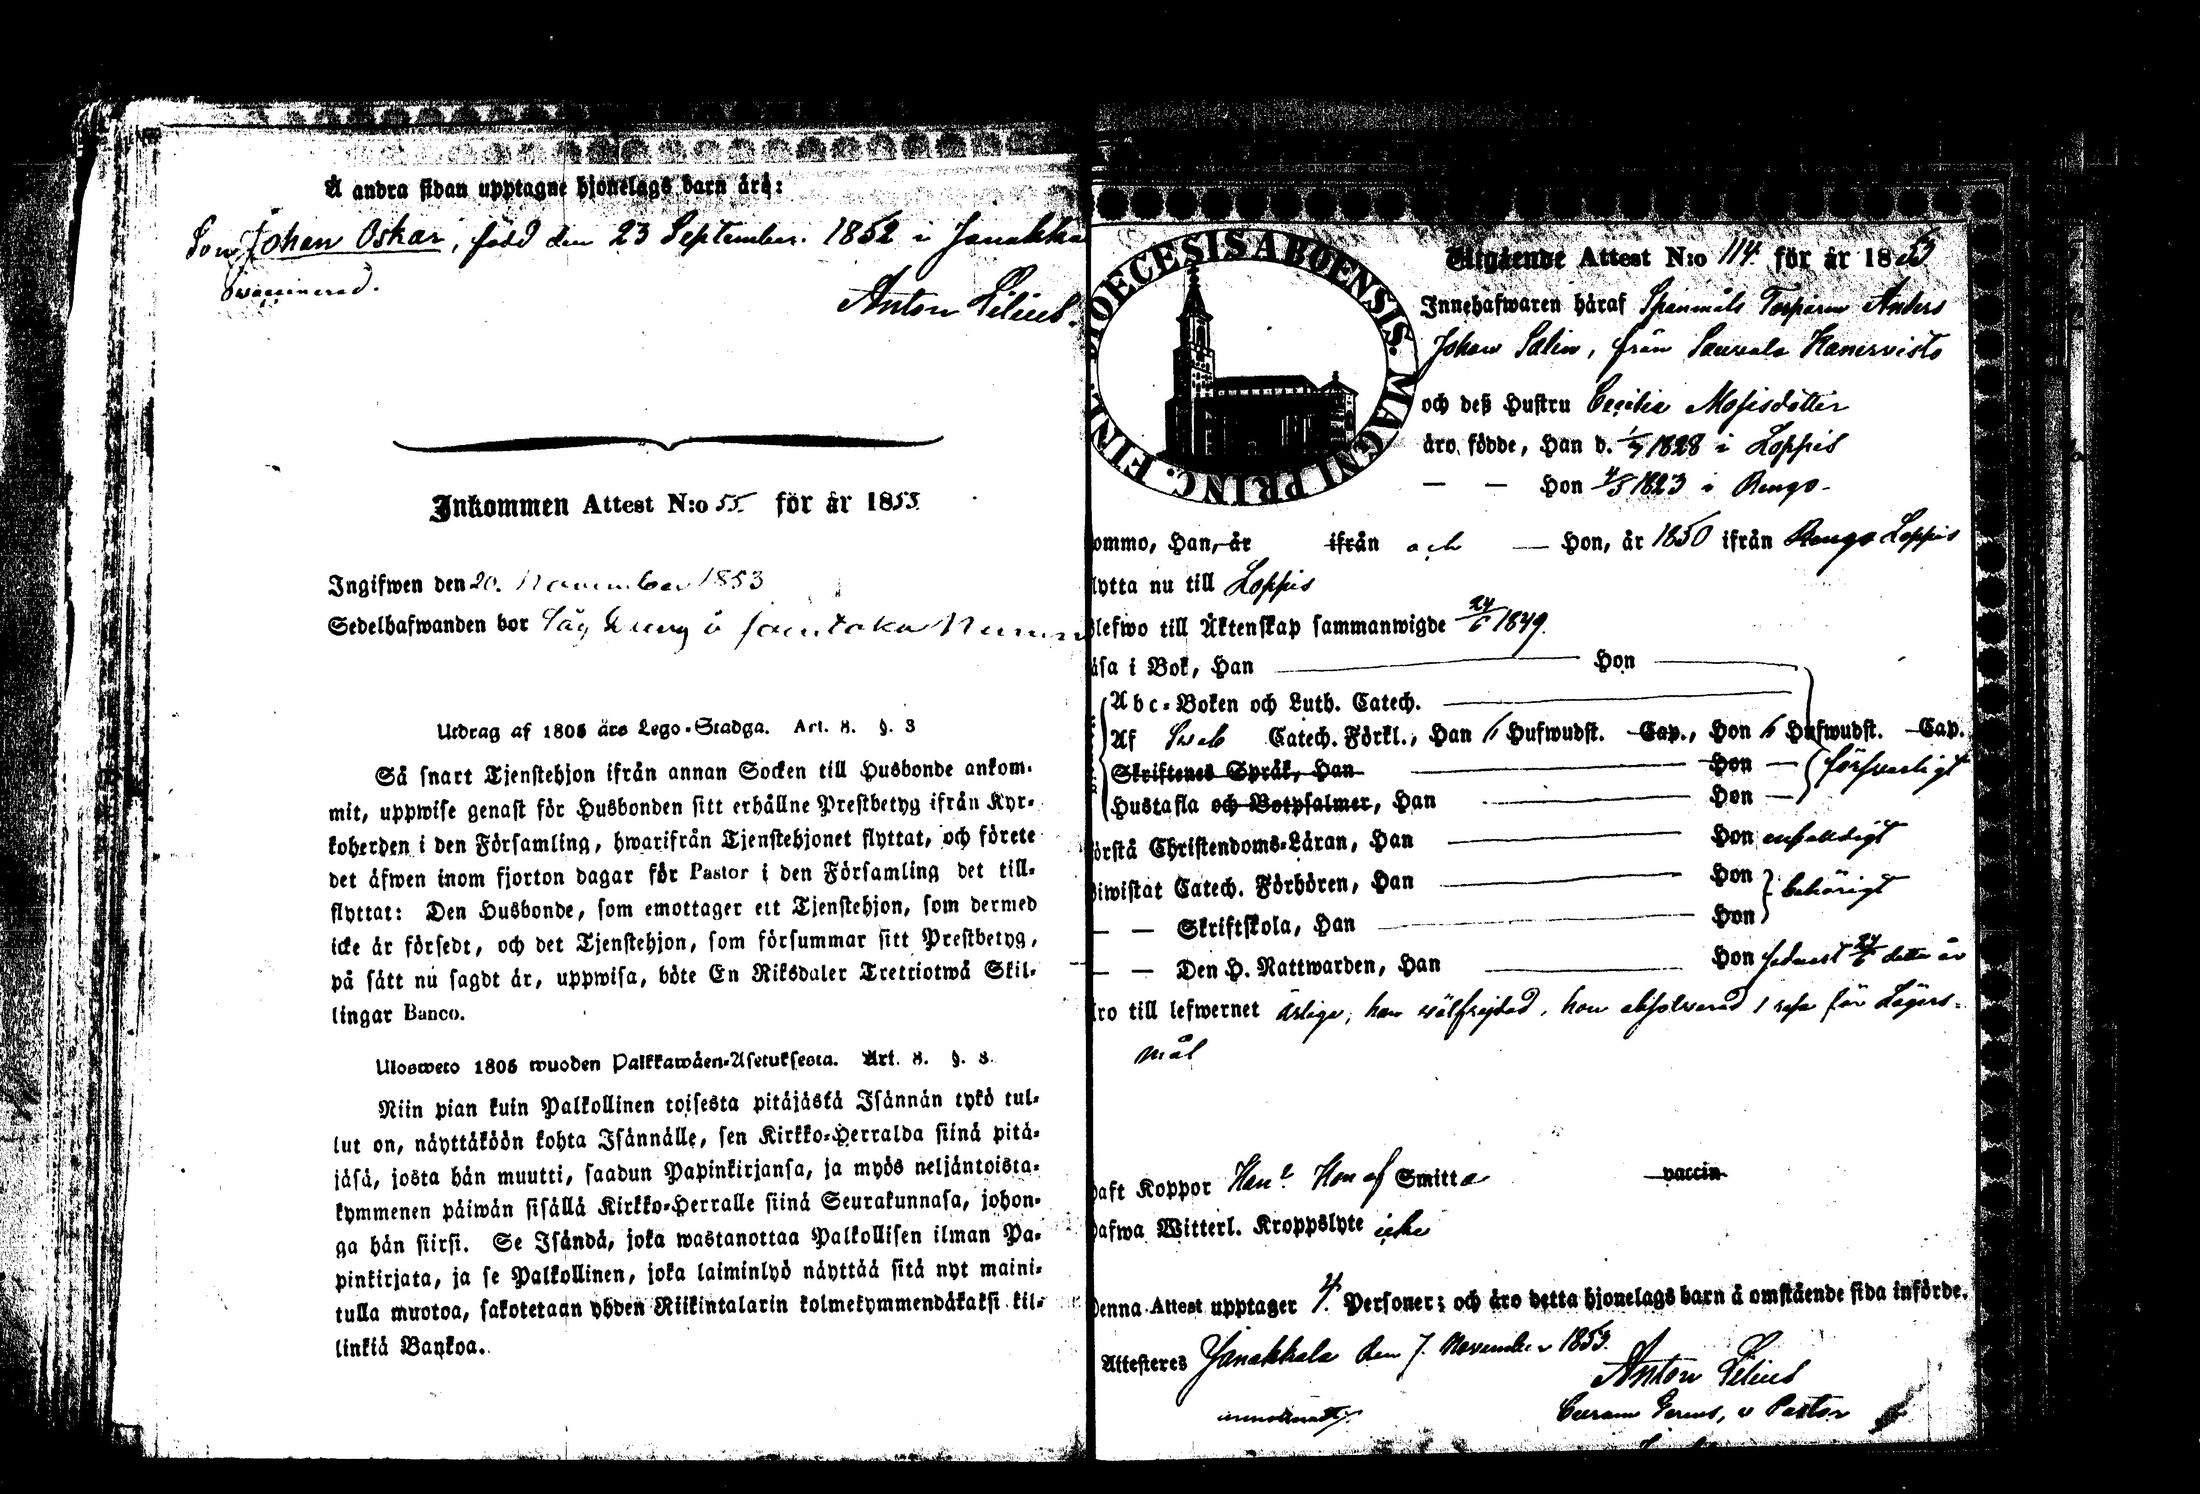 Å andra sidan upptagne hjonelags barn äro:
Son Johan Oskar, född den 23 September 1852 i Janakka
vaccinerad.
Anton Lilius.
Inkommen Attest N:o 55. för år 1853.
Ingifwen den 20. November 1853
Sedelhafwanden bor
Utdrag af 1805 års Lego-Stadga. Art. 8. §. 3
Så snart Tjenstehjon ifrån annan Socken till Husbonde ankom-
mit, uppwise genast för Husbonden sitt erhållne Prestbetyg ifrån Kyr-
koherden i den Församling, hwarifrån Tjenstehjonet flyttat, och förete
det äfwen inom fjorton dagar för Pastor i den Församling det till-
flyttat: Den Husbonde, som emottager ett Tjenstehjon, som dermed
icke är försedt, och det Tjenstehjon, som försummar sitt Prestbetyg,
på sätt nu sagdt är, uppwisa, böte En Riksdaler Trettiotwå Skil-
lingar Banco.
Ulosweto 1805 wuoden Palkkawäen-Asetuksesta. Art. 8. §. 3.
Niin pian kuin Palkollinen toisesta pitäjästä Isännän tykö tul-
lut on, näyttäköön kohta Isännälle, sen Kirkko-Herralda siinä pitä-
jäsä, josta hän muutti, saadun Papinkirjansa, ja myös neljäntoista-
kymmenen päiwän sisällä Kirkko-Herralle siinä Seurakunnasa, johon-
ga hän siirsi. Se Isändä, joka wastanottaa Palkollisen ilman Pa-
pinkirjata, ja se Palkollinen, joka laiminlyö näyttää sitä nyt maini-
tulla muotoa, sakotetaan yhden Riikintalarin kolmekymmendäkaksi kil-
linkiä Bankoa.
DIOECESIS ABOENSIS. MAGNI PRINC. FINL.
Utgående Attest N:o 114. för år 1853
Innehafwaren häraf Spanmåls Torparen Anders
Johan Salin, från Saurala Kanervisto
och deß Hustru Cecilia Mosisdotter
äro födde, Han d. 1828 i Loppis
— — Hon 4/5 1823 i Rengo
ommo, Han, år ifrån och — Hon, år 1850 ifrån Rengo Loppis
lytta nu till Loppis
lefwo till Äktenskap sammanwigde 24/6 1849.
äsa i Bok, Han Hon
Abc-Boken och Luth. Catech.
Af Sveb Catech. Förkl., Han 6 Hufwudst. Cap., Hon 6 Hufwudst. Cap.
Skriftenes Språk, Han Hon försvarligt
Hustafla och Botpsalmer, Han Hon
örstå Christendoms-Läran, Han Hon enfaldigt
iwistat Catech. Förhören, Han Hon behörigt
— — Skriftskola, Han Hon
— — Den H. Nattwarden, Han Hon sednast 24/6 detta år
ro till lefwernet ärliga, han välfrejdad, hon absolverad 1 resa för Lägers-
mål
haft Koppor Han Hon af Smitta vaccin
hafwa Witterl. Kroppslyte icke
Denna Attest upptager 4. Personer; och äro detta hjonelags barn å omstående sida införde.
Attesteres Janakkala den 7. November 1853.
Anton Lilius
v Pastor